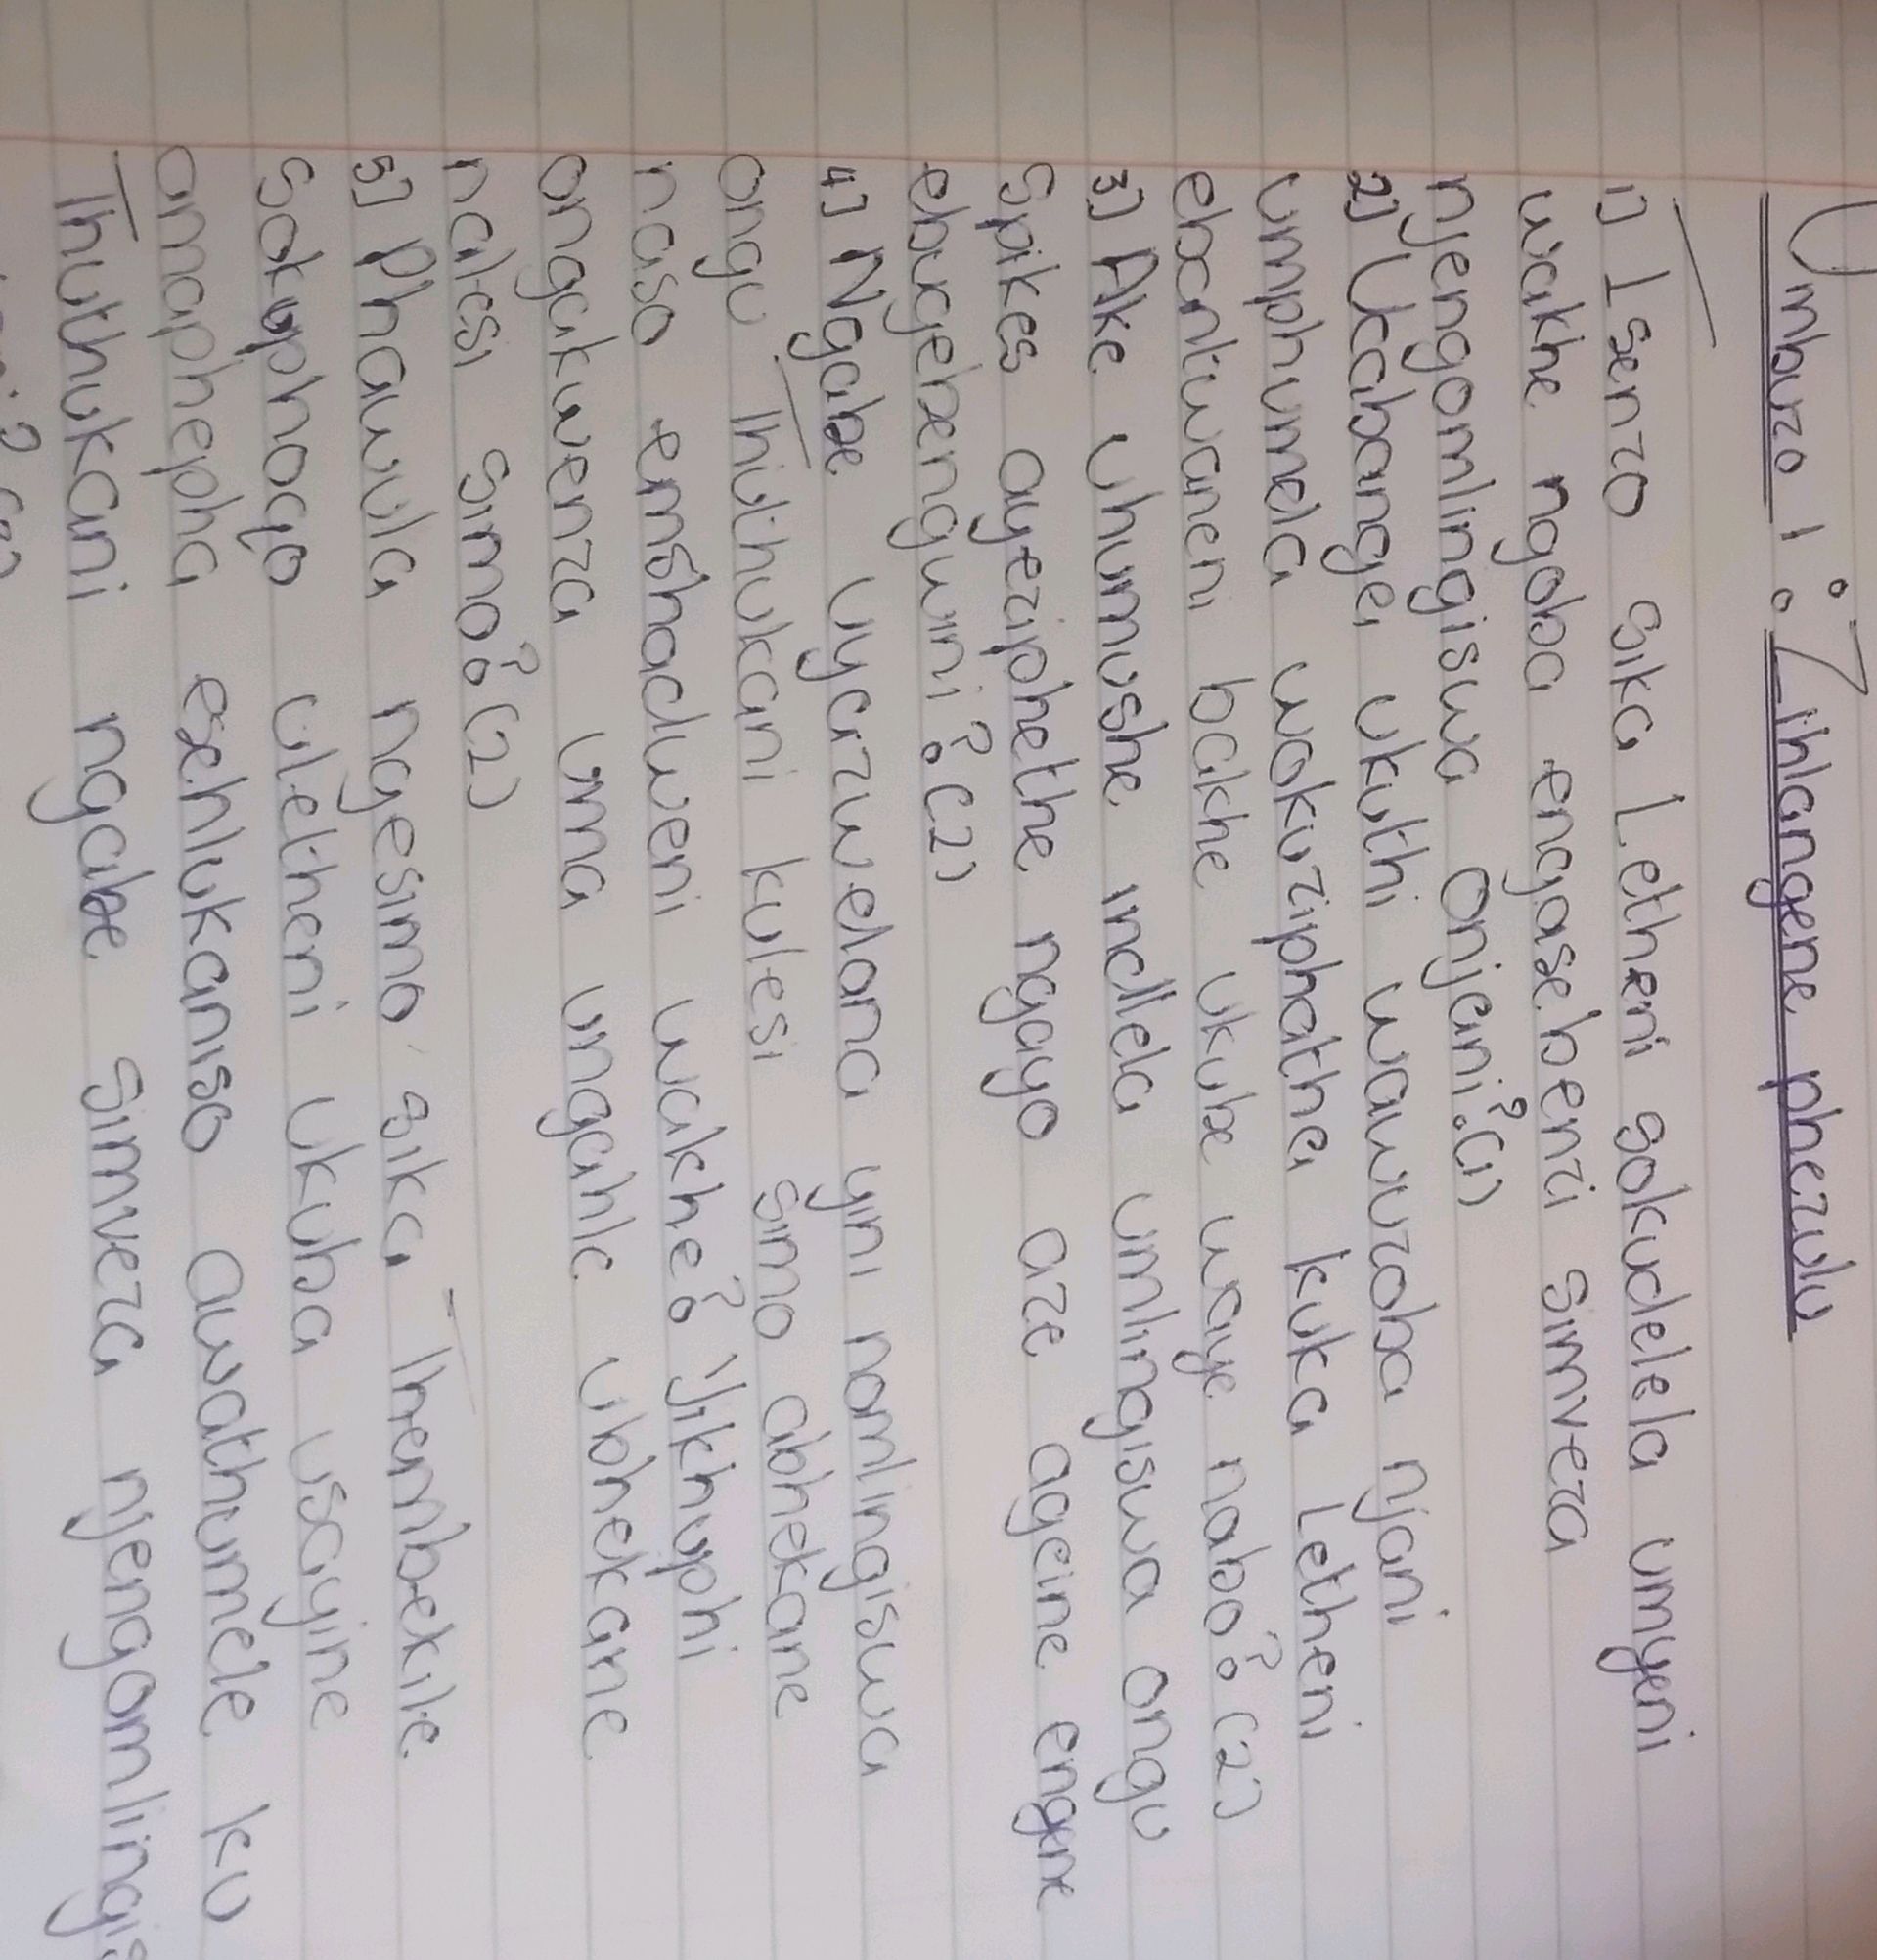 Umbuzo 1: Zihlangene phezulu
1) Isenzo sika Letheni sokudelela umyeni
wakhe ngoba engasebenzi simveza
njengomlingiswa onjani? (1)
2) Ucabanga ukuthi wawuzoba njani
umphumela wokuziphatha kuka Letheni
ebantwaneni bakhe ukube waye nabo? (2)
3) Ake uhumushe indlela umlingiswa ongu
Spikes ayeziphethe ngayo aze agcine engene
ebugebengwini? (2)
4) Ngabe uyazwelana yini nomlingiswa
ongu Thuthukani kulesi simo abhekane
naso emshadweni wakhe? Yikhuphi
ongakwenza uma ungahle ubhekane
nalesi simo? (2)
5) Phawula ngesimo sika Thembekile
Sokuphoqo uLetheni ukuba usayine
amaphepha esehlukaniso awathumele ku
Thuthukani ngabe simveza njengomlingis